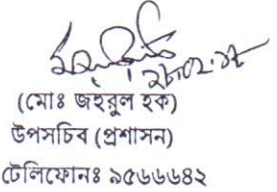 ২৮.০২.১৫
(মোঃ জহুরুল হক)
উপসচিব (প্রশাসন)
টেলিফোনঃ ৯৫৬৬৬৪২